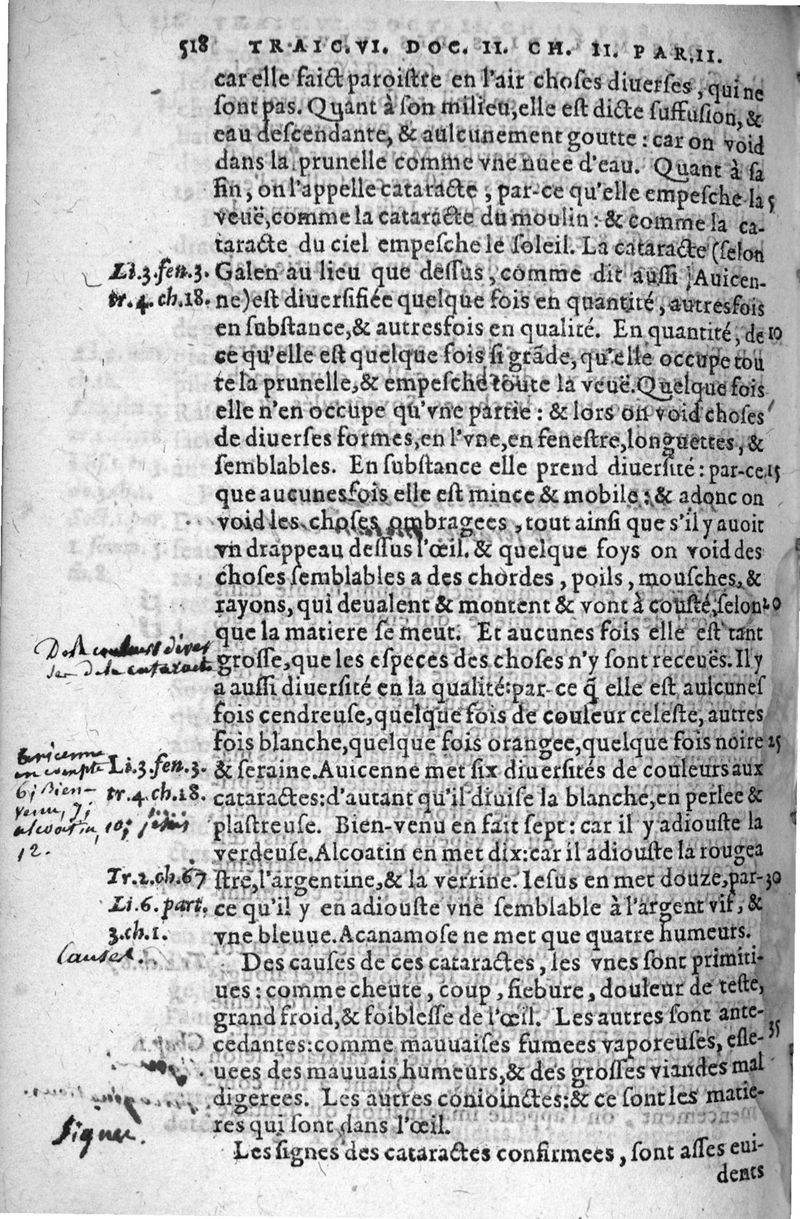 518 TRAIC. VI. DOC. II. CH. II. PAR. II.
car elle faict paroistre en l'air choses diuerses, qui ne
sont pas. Quant à son milieu, elle est dicte suffusion, &
eau descendante, & aulcunement goutte : car on void
dans la prunelle comme vne nuee d'eau. Quant à sa
fin, on l'appelle cataracte, par-ce qu'elle empesche la 5
veuë, comme la cataracte du moulin : & comme la ca-
taracte du ciel empesche le soleil. La cataracte (selon
Li.3.fen.3. Galen au lieu que dessus, comme dit aussi Auicen-
tr.4.ch.18. ne) est diuersifiée quelque fois en quantité, autresfois
en substance, & autresfois en qualité. En quantité, de 10
ce qu'elle est quelque fois si grãde, qu'elle occupe tou
te la prunelle, & empesche toute la veuë. Quelque fois
elle n'en occupe qu'vne partie : & lors on void choses
de diuerses formes, en l'vne, en fenestre, longuettes, &
semblables. En substance elle prend diuersité : par-ce 15
que aucunesfois elle est mince & mobile : & adonc on
void les choses ombragees, tout ainsi que s'il y auoit
vn drappeau dessus l'œil. & quelque foys on void des
choses semblables a des chordes, poils, mousches, &
rayons, qui deualent & montent & vont à cousté, selon 20
que la matiere se meut. Et aucunes fois elle est tant
De la couleur diuer
se de la cataracte
grosse, que les especes des choses n'y sont receuës. Il y
a aussi diuersité en la qualité: par-ce q̃ elle est aulcunes
fois cendreuse, quelque fois de couleur celeste, autres
fois blanche, quelque fois orangee, quelque fois noire 25
Auicenne
en compte
6; Bien-
venu, 7;
alcoatin, 10; jesus
12.
Li.3.fen.3. & seraine. Auicenne met six diuersités de couleurs aux
tr.4.ch.18. cataractes: d'autant qu'il diuise la blanche, en perlee &
plastreuse. Bien-venu en fait sept : car il y adiouste la
verdeuse. Alcoatin en met dix: car il adiouste la rougea
Tr.2.ch.67 stre, l'argentine, & la verrine. Iesus en met douze, par- 30
Li.6.part. ce qu'il y en adiouste vne semblable à l'argent vif, &
3.ch.1. vne bleuue. Acanamose ne met que quatre humeurs.
Causes.
Des causes de ces cataractes, les vnes sont primiti-
ues : comme cheute, coup, fiebure, douleur de teste,
grand froid, & foiblesse de l'œil. Les autres sont ante-
cedantes: comme mauuaises fumees vaporeuses, esle- 35
uees des mauuais humeurs, & des grosses viandes mal
digerees. Les autres conioinctes: & ce sont les matie-
res qui sont dans l'œil.
Signes.
Les signes des cataractes confirmees, sont asses eui-
dents